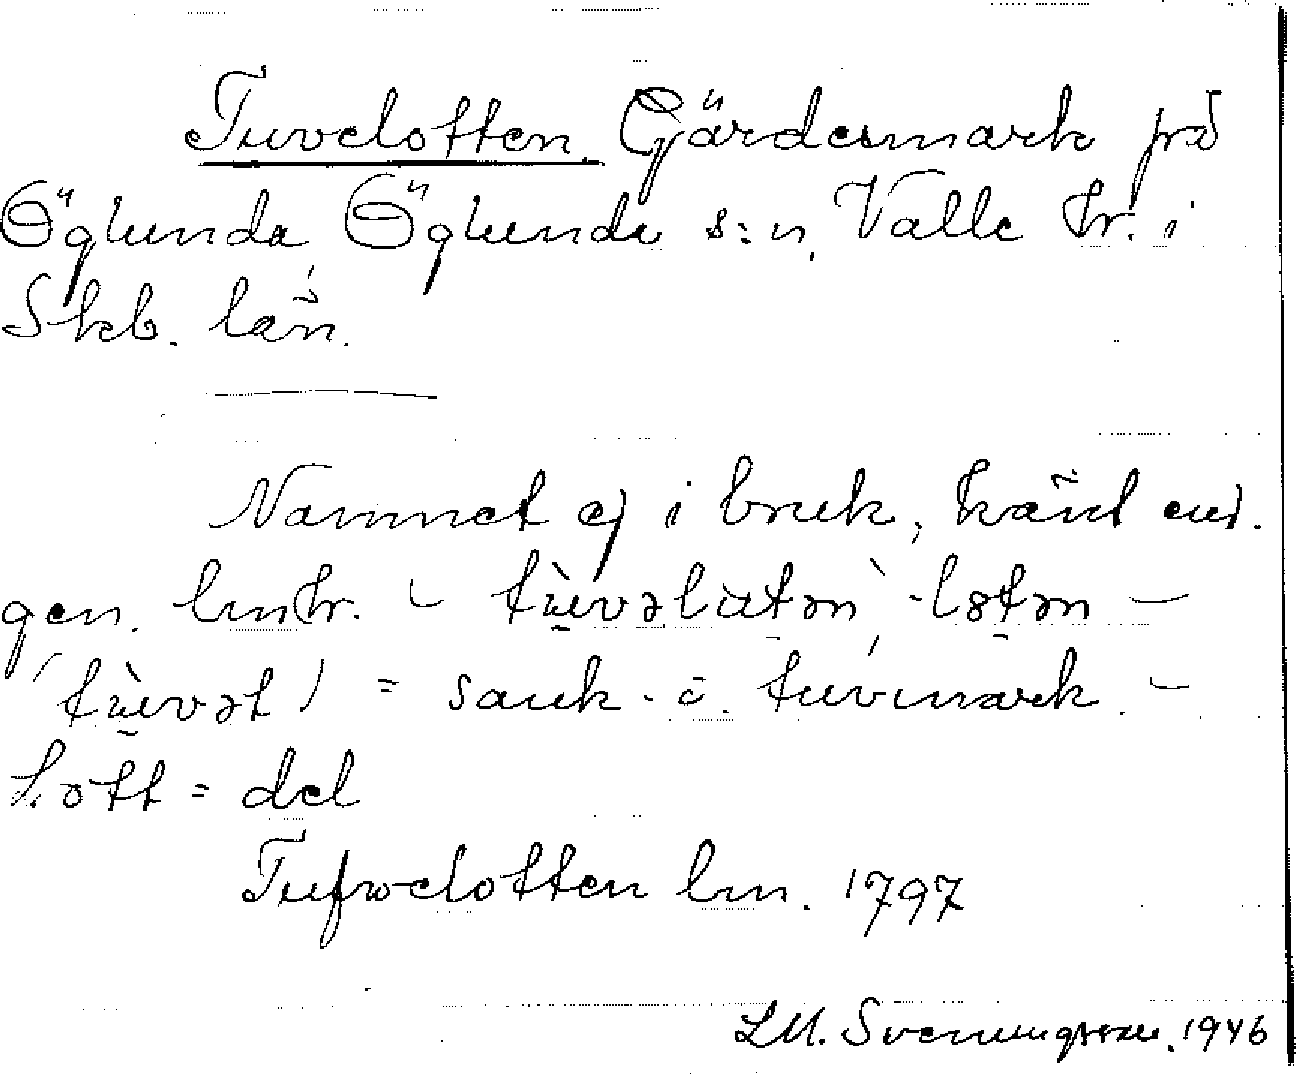 Tuvelotten Gärdesmark på
Öglunda, Öglunda s:n, Valle hr. i
Skb. län.
Namnet ej i bruk, känt end.
gen. lmtr. – tùvəlɯtən, -lɵtən –
(tùvət) = sank- o. tuvmark. –
Lott = del
Tufwelotten lm. 1797
LM. Svenungsson. 1946